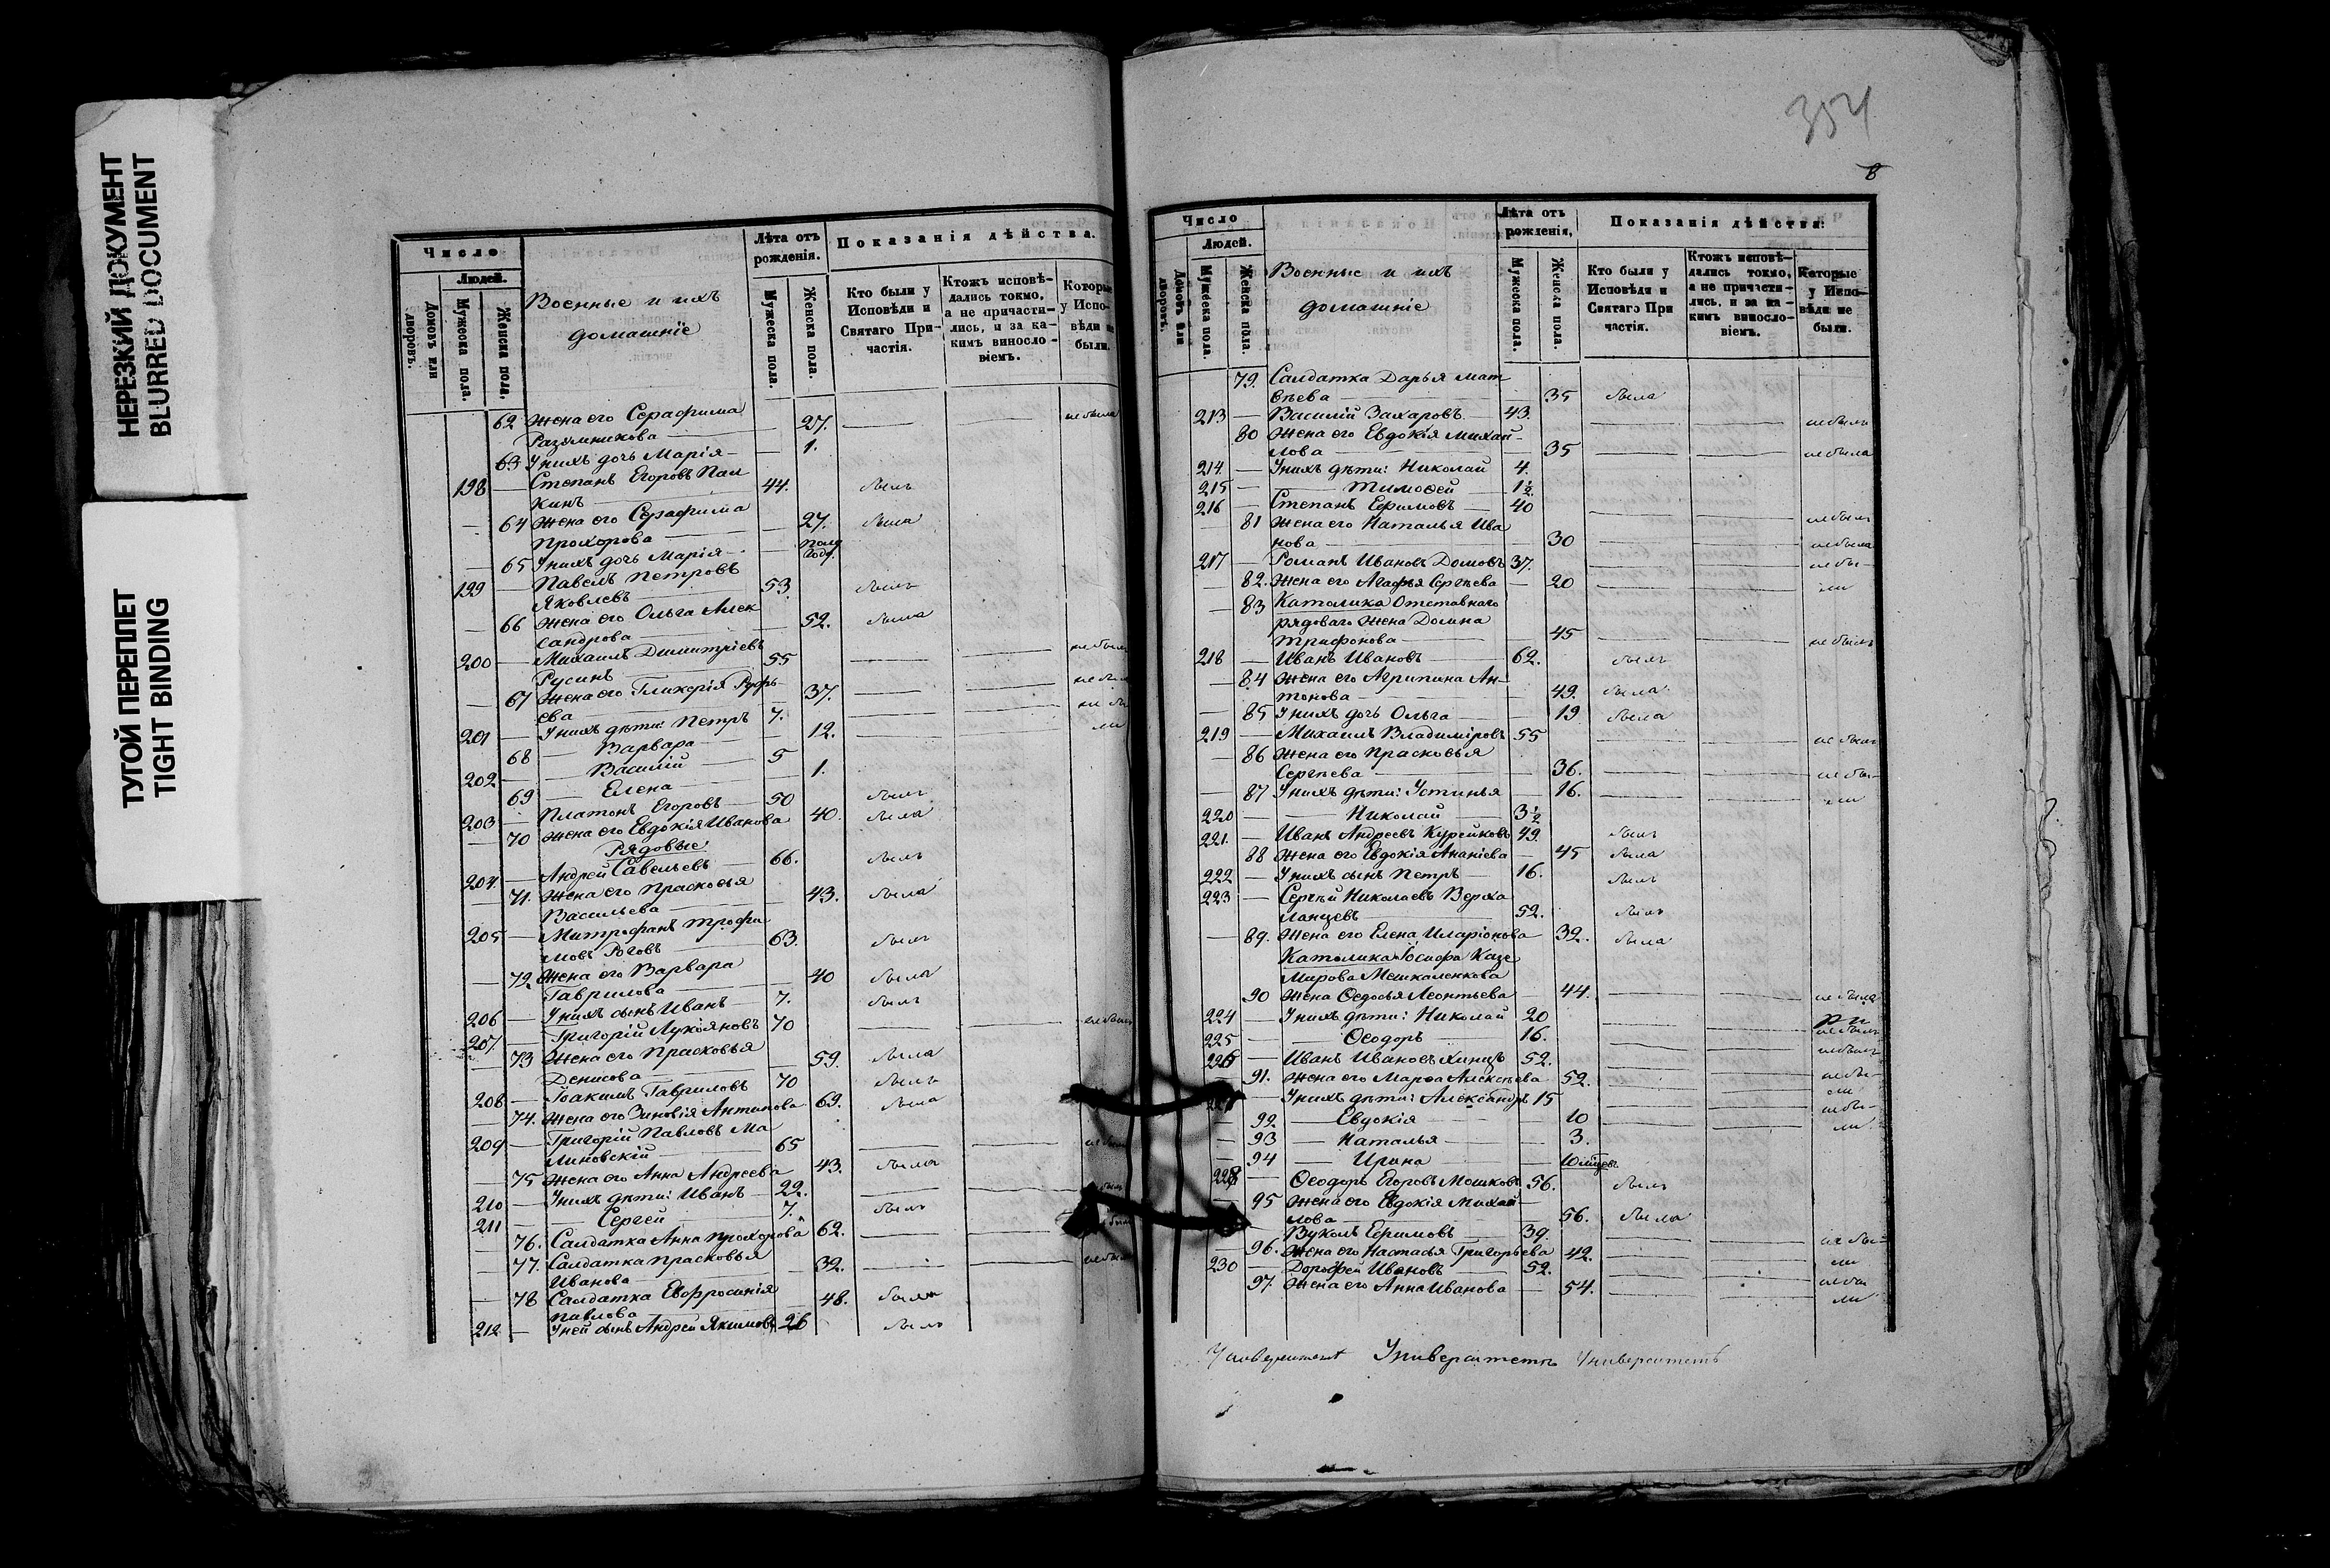 НЕРЕЗКИЙ ДОКУМЕНТ
BLURRED DOCUMENT
ТУГОЙ ПЕРЕПЛЕТ
TIGHT BINDING
Число
Людей.
Домовъ или дворовъ.
Мужеска пола.
Женска пола.
Военные и ихъ
домашніе
Лѣта отъ рожденія.
Мужеска пола.
Женска пола.
Показанія дѣйства.
Кто были у Исповѣди и Святаго Причастія.
Ктожъ исповѣдались токмо, а не причастились, и за какимъ винословіемъ.
Которые у Исповѣди не были.
62 Жена его Серафима
Разумникова — 27. не была
63 У нихъ дочь Марія — 1.
198 — Степанъ Егоровъ Пал
кинъ 44. былъ
— 64 Жена его Серафима
Прохорова — 27. была
— 65 У нихъ дочь Марія — полгода
199 — Павелъ Петровъ
Яковлевъ 53. былъ
— 66 Жена его Ольга Алек
сандрова — 52. была
200 — Михаилъ Димитріевъ
Русинъ 55 не былъ
— 67 Жена его Гликерія
ева — 37.
201 — У нихъ дѣти: Петръ 7.
68 — Варвара — 12.
202 — Василій — 5
69 — Елена — 1.
203 — Платонъ Егоровъ — 50 былъ
— 70 Жена его Евдокія Иванова 40. была
Рядовые
204. — Андрей Савельевъ — 66. былъ
— 71. Жена его Прасковья
Васильева — 43. была
205 — Митрофанъ Трофи
мовъ Роговъ 63. былъ
— 72 Жена его Варвара
Гаврилова — 40 была
206 — У нихъ сынъ Иванъ — 7. былъ
207 — Григорій Лукіяновъ 70 не былъ
— 73 Жена его Прасковья
Денисова — 59. была
208 — Іоакимъ Гавриловъ 70 былъ
— 74. Жена его Зиновія Антипова 69. была
209 — Григорій Павловъ Ма
линовскій — 65
— 75 Жена его Анна Андреева 43. была
210 — У нихъ дѣти: Иванъ — 22.
211 — Сергей — 7. былъ
— 76. Салдатка Анна Прохорова 62.
— 77. Салдатка Прасковья
Иванова — 32.
— 78 Салдатка Евфросинія
Павлова — 48. была
212 — У ней сынъ Андрей Якимовъ 26 былъ
354
8
Число
Людей.
Домовъ или дворовъ.
Мужеска пола.
Женска пола.
Военные и ихъ
домашніе
Лѣта отъ рожденія,
Мужеска пола.
Женска пола.
Показанія дѣйства:
Кто были у Исповѣди и Святаго Причастія.
Ктожъ исповѣдались токмо, а не причастились, и за какимъ винословіемъ.
Которые у Исповѣди не были.
79. Салдатка Дарья Мат
вѣева — 35 была
213 — Василій Захаровъ — 43. не былъ
80 Жена его Евдокія Михай-
лова — 35 не была
214 — У нихъ дѣти: Николай 4.
215 — Тимоѳей 1½
216 — Степанъ Ефимовъ — 40 не былъ
81 Жена его Наталья Ива
нова — 30 не была
217 — Романъ Ивановъ Домовъ 37. не бы-
— 82. Жена его Агафья Сергѣева — 20 ли
— 83 Католика Отставнаго
рядоваго Жена Домна
Трифонова — 45
218 — Иванъ Ивановъ — 62. былъ
— 84 Жена его Агрипина Ан-
тонова — 49. была
— 85 У нихъ дочь Ольга — 19 была
219 — Михаилъ Владиміровъ 55 не былъ
— 86 Жена его Прасковья
Сергѣева — 36. не бы-
— 87 У нихъ дѣти: Устинья — 16. ли
220 — Николай — 3½
221. — Иванъ Андреевъ Курейковъ 49. былъ
— 88 Жена его Евдокія Ананіева — 45 была
222 — У нихъ сынъ Петръ — 16. былъ
223 — Сергѣй Николаевъ Верха
ланцевъ 52. былъ
— 89. Жена его Елена Иларіонова 32. была
Католика Іосифа Казе
мирова
90 Жена Ѳедосья Леонтьева 44. не была
224 — У нихъ дѣти: Николай 20 не былъ
225 — Ѳеодоръ — 16. не былъ
226 — Иванъ Ивановъ 52. не бы-
91. Жена его Марѳа Алексѣева 52. ли
— У нихъ дѣти: Александръ 15 не бы-
— 92 — Евдокія — 10 ли
— 93 — Наталья — 3.
— 94 — Ирина — 10 мѣсяц.
228 — Ѳеодоръ Егоровъ Мошковъ 56. былъ
— 95 Жена его Евдокія Михай
лова — 56. была
— Вуколъ Ефимовъ — 39. не бы-
— 96. Жена его Настасья Григорьева 42. ли
230 — Дорофей Ивановъ 52. не бы
97. Жена его Анна Иванова — 54. ли
Университетъ Университетъ Университетъ